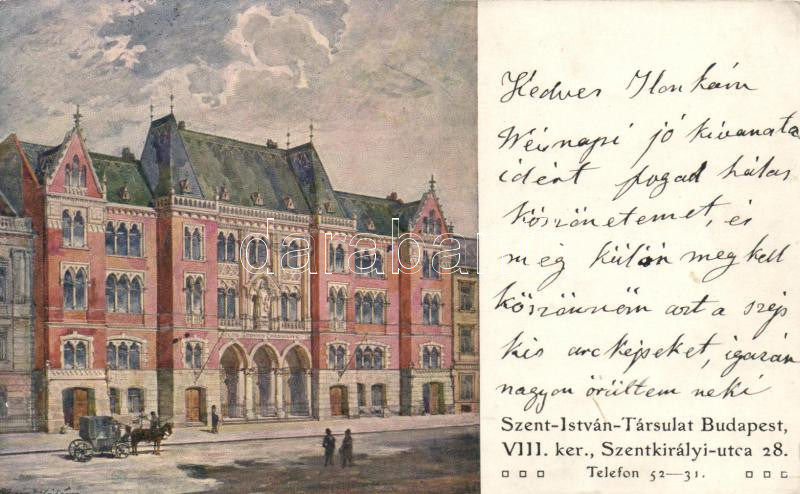 Kedves Ilonkám
Névnapi jó kivanata
idért fogad hálás
köszönetemet, és
még külön meg kell
köszönnöm azt a szép
kis arcképeket, igazán
nagyon örültem neki
Szent-István-Társulat Budapest,
VIII. ker., Szentkirályi-utca 28.
Telefon 52—31.
darabanth